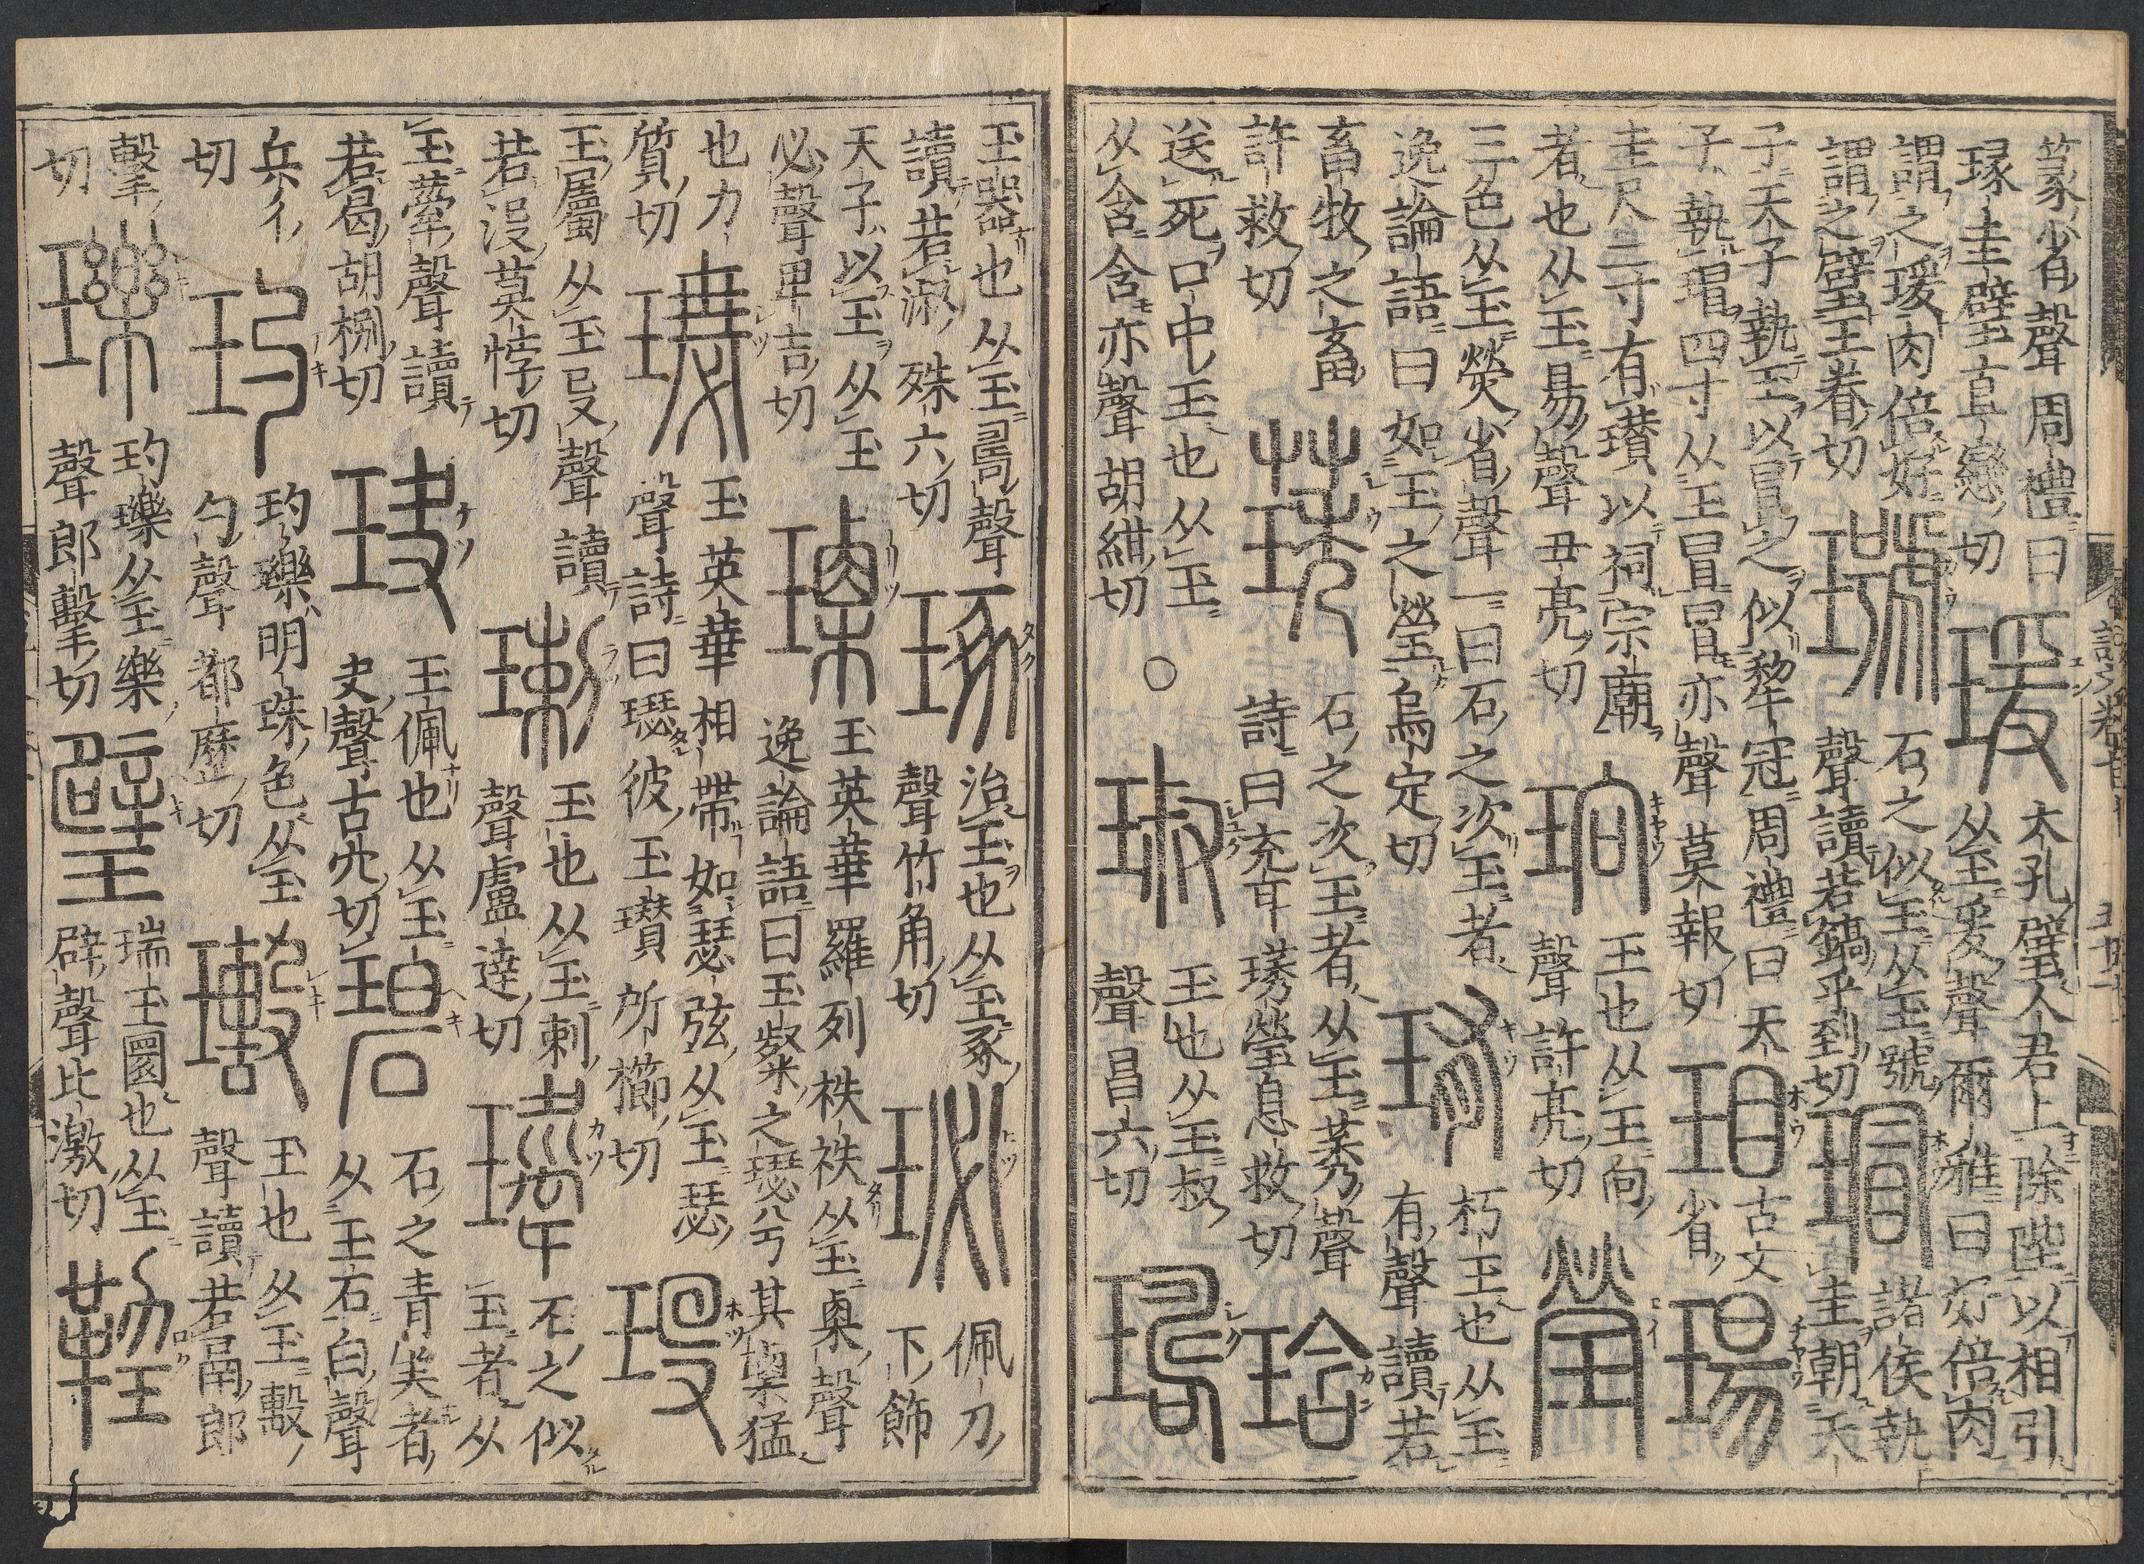 篆省聲周禮曰
瑑圭璧直戀切
瑗
大孔璧人君上除陛以相引
从玉爰聲爾雅曰好倍肉
謂之瑗肉倍好
謂之璧王眷切
石之似玉从玉號
聲讀若鎬乎到切
瑁
諸侯執
圭朝天
子天子執玉以冒之似犂冠周禮曰天
子執瑁四寸从玉冒冒亦聲莫報切
古文
省
瑒
圭尺二寸有瓚以祠宗廟
者也从玉昜聲丑亮切
珦
玉也从玉向
聲許亮切
瑩
玉色从玉熒省聲一曰石之次玉者
逸論語曰如玉之瑩烏定切
珛
朽玉也从玉
有聲讀若
畜牧之畜
許救切
璓
石之次玉者从玉莠聲
詩曰充耳璓瑩息救切
琀
送死口中玉也从玉
从含含亦聲胡紺切
○
琡
玉也从玉叔
聲昌六切
玉器也从玉𠷎聲
讀若淑殊六切
琢
治玉也从玉豖
聲竹角切
珌
佩刀
下飾
天子以玉从玉
必聲畢吉切
瑮
玉英華羅列秩秩从玉㮚聲
逸論語曰玉粲之璱兮其㮚猛
也力
質切
璱
玉英華相帶如瑟弦从玉瑟
聲詩曰璱彼玉瓚所櫛切
玉屬从玉𠬸聲讀
若没莫悖切
玉也从玉剌
聲盧達切
石之似
玉者从
玉舝聲讀
若曷胡捌切
玦
玉佩也从玉
夬聲古穴切
碧
石之青美者
从玉石白聲
兵彳
切
玓
玓瓅明珠色从玉
勺聲都歷切
玉也从玉毄
聲讀若鬲郎
擊
切
瓅
玓瓅从玉樂
聲郎擊切
璧
瑞玉圜也从玉
辟聲比激切